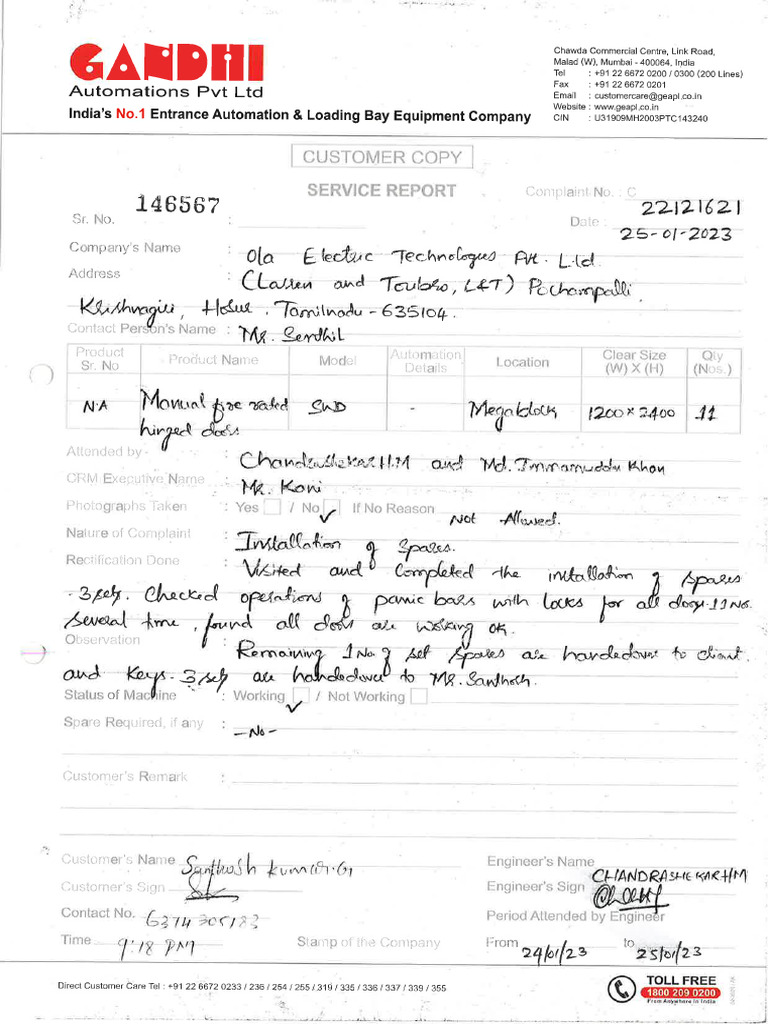 GANDHI
Automations Pvt Ltd
India's No.1 Entrance Automation & Loading Bay Equipment Company
Chawda Commercial Centre, Link Road,
Malad (W), Mumbai - 400064, India
Tel : +91 22 6672 0200 / 0300 (200 Lines)
Fax : +91 22 6672 0201
Email : customercare@geapl.co.in
Website : www.geapl.co.in
CIN : U31909MH2003PTC143240
CUSTOMER COPY
SERVICE REPORT
Complaint No. : C 22121621
Sr. No. 146567 :
Date : 25-01-2023
Company's Name : Ola Electric Technologies Pvt. Ltd.
Address : (Larsen and Toubro, L&T) Pochampalli,
Krishnagiri, Hosur. Tamilnadu - 635104.
Contact Person's Name : Mr. Senthil
Product Sr. No Product Name Model Automation Details Location Clear Size (W) X (H) Qty (Nos.)
NA Manual fire rated SWD - Megablock 1200 x 2400 11
hinged doors
Attended by : Chandrashekar H.M and Md. Immamuddu Khan
CRM Executive Name : Mr. Kani
Photographs Taken : Yes / No ✓ If No Reason Not Allowed.
Nature of Complaint : Installation of spares.
Rectification Done : Visited and Completed the intallation of spares
- 3 sets. Checked operations of panic bars with locks for all doors-11 No.
several time, found all doors are working ok.
Observation : Remaining 1 No. of set spares are handedover to client
and Keys-3 sets are handedover to Mr. Santhosh.
Status of Machine : Working ✓ / Not Working
Spare Required, if any : - No -
Customer's Remark :
Customer's Name Santhosh kumar.G
Customer's Sign
Contact No. 6374305183
Time 9:18 PM
Stamp of the Company
Engineer's Name CHANDRASHEKAR H M
Engineer's Sign
Period Attended by Engineer
From 24/01/23 to 25/01/23
Direct Customer Care Tel : +91 22 6672 0233 / 236 / 254 / 255 / 319 / 335 / 336 / 337 / 339 / 355
TOLL FREE
1800 209 0200
From Anywhere in India